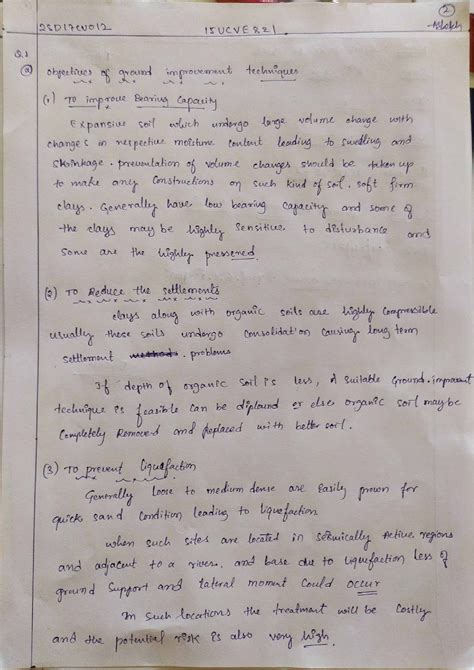 2
2SD17CV012 15UCVE821 Ashokh
Q.1
(a) Objectives of ground improvement techniques
(1) To improve Bearing Capacity
Expansive soil which undergo large volume change with
changes in respective moisture content leading to swelling and
shrinkage. preventation of volume changes should be taken up
to make any constructions on such kind of soil. soft firm
clays. Generally have low bearing capacity and some of
the clays may be highly sensitive to disturbance and
some are the highly
(2) To Reduce the settlements
clays along with organic soils are highly compressible
usually these soils undergo consolidation causing long term
settlement problems
If depth of organic soil is less, A suitable Ground.
technique is feasible can be or else organic soil maybe
completely Removed and Replaced with better soil.
(3) To prevent liquefaction
Generally loose to medium dense are easily prown for
quick sand condition leading to liquefaction
when such sites are located in seismically Active regions
and adjacent to a river. and base due to liquefaction Less of
ground support and lateral moment could occur
In such locations the treatment will be costly
and the potential risk is also very high.